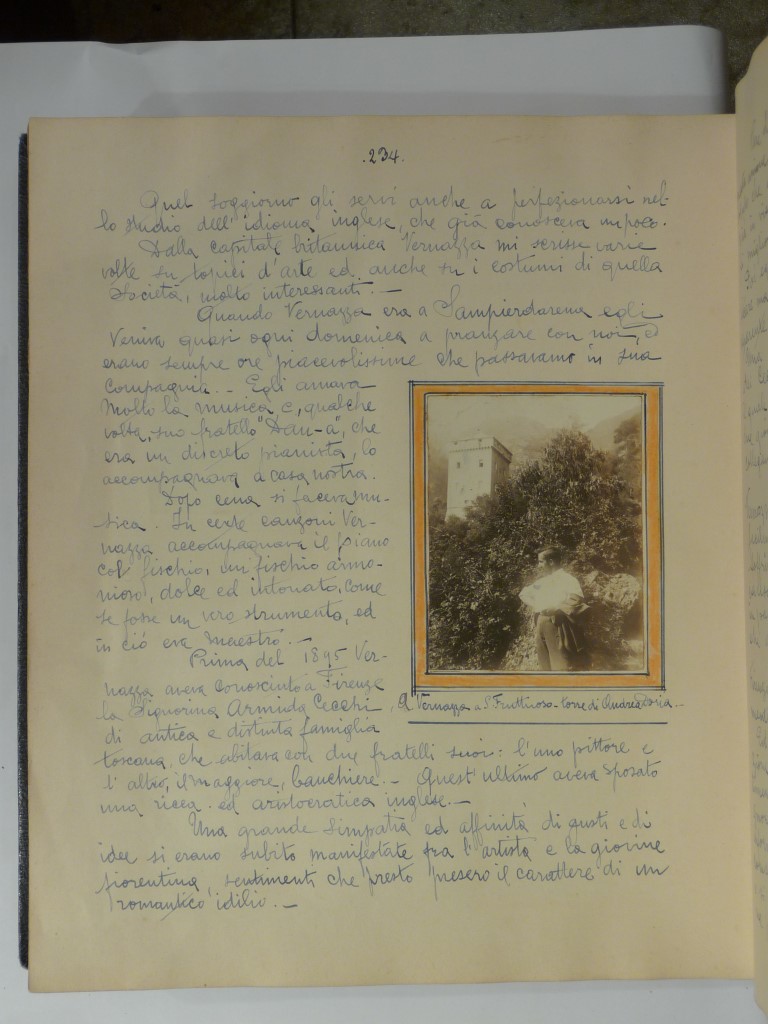 .234.
Quel soggiorno gli servì anche a perfezionarsi nel-
lo studio dell'idioma inglese, che già conosceva un poco.
Dalla capitale britannica Vernazza mi scrisse varie
volte su topici d'arte ed anche su i costumi di quella
Società, molto interessanti. —
Quando Vernazza era a Sampierdarena egli
veniva quasi ogni domenica a pranzare con noi, ed
erano sempre ore piacevolissime che passavamo in sua
compagnia. — Egli amava
molto la musica e, qualche
volta, suo fratello "Dan-a", che
era un discreto pianista, lo
accompagnava a casa nostra.
Dopo cena si faceva mu-
sica. In certe canzoni Ver-
nazza accompagnava il piano
col fischio, un fischio armo-
nioso, dolce ed intonato, come
se fosse un vero strumento, ed
in ciò era maestro. —
Prima del 1895 Ver-
nazza aveva conosciuto a Firenze
la Signorina Armida Cecchi
di antica e distinta famiglia
A. Vernazza a S. Fruttuoso - torre di Andrea Doria —
toscana, che abitava con due fratelli suoi: l'uno pittore e
l'altro, il maggiore, banchiere. — Quest'ultimo aveva sposato
una ricca ed aristocratica inglese. —
Una grande simpatia ed affinità di gusti e di
idee si erano subito manifestate fra l'artista e la giovine
fiorentina, sentimenti che presto presero il carattere di un
romantico idilio. —